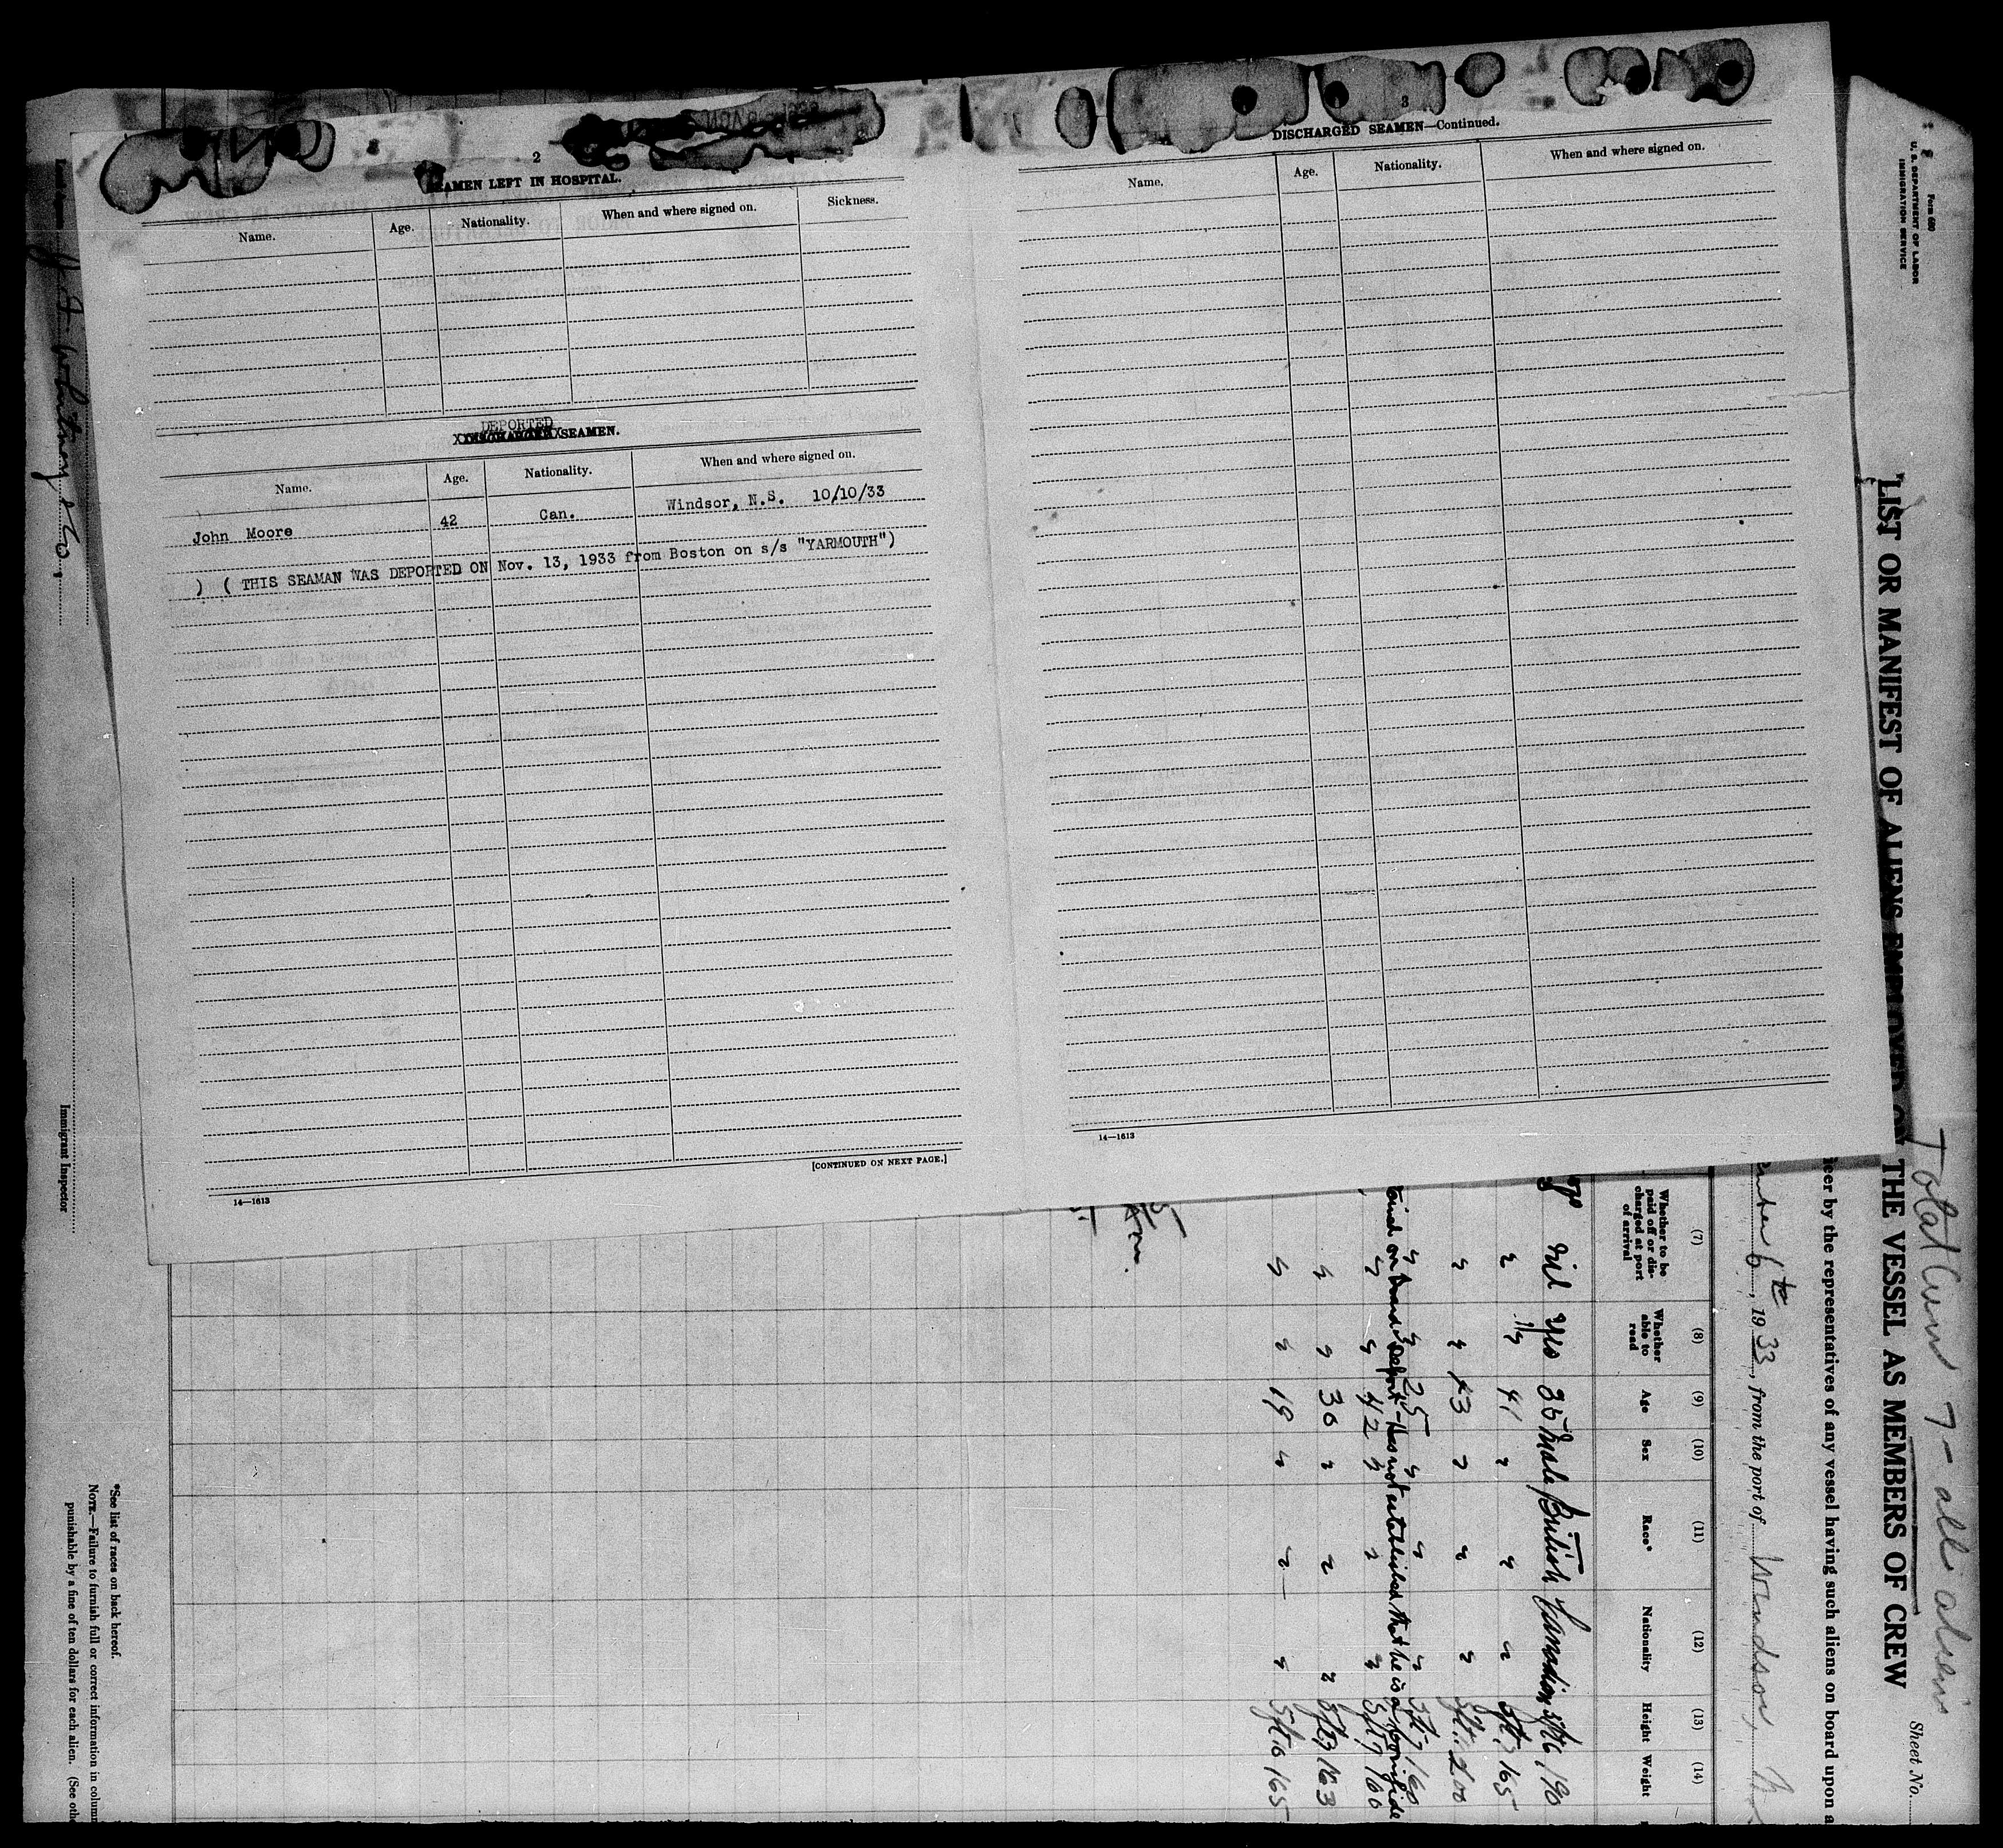 2
SEAMEN LEFT IN HOSPITAL.
Name. Age. Nationality. When and where signed on. Sickness.
DEPORTED
XXDISCHARGEDXX SEAMEN.
Name. Age. Nationality. When and where signed on.
John Moore 42 Can. Windsor, N.S. 10/10/33
) ( THIS SEAMAN WAS DEPORTED ON Nov. 13, 1933 from Boston on s/s "YARMOUTH")
[CONTINUED ON NEXT PAGE.]
14—1613
3
DISCHARGED SEAMEN—Continued.
Name. Age. Nationality. When and where signed on.
14—1613
Form 680
U. S. DEPARTMENT OF LABOR
IMMIGRATION SERVICE
Total Crew 7 - all aliens
Sheet No.
LIST OR MANIFEST OF ALIENS EMPLOYED ON THE VESSEL AS MEMBERS OF CREW
by the representatives of any vessel having such aliens on board upon
6th, 1933, from the port of Windsor,
(7) (8) (9) (10) (11) (12) (13) (14)
Whether to be paid off or discharged at port of arrival
Whether able to read
Age
Sex
Race*
Nationality
Height
Weight
nil yes 35 Male British Canadian 190
" " 41 " " " 165
" " 43 " " " 200
" " 25 " " " 5ft 7 160
on board & deport - Has not established that he is a bonafide
" " 42 " " " 5ft 7 160
" " 30 " " " 163
" " 19 " " " 165
*See list of races on back hereof.
NOTE.—Failure to furnish full or correct information in
punishable by a fine of ten dollars for each alien. (See
Whitney & Co,
Immigrant Inspector